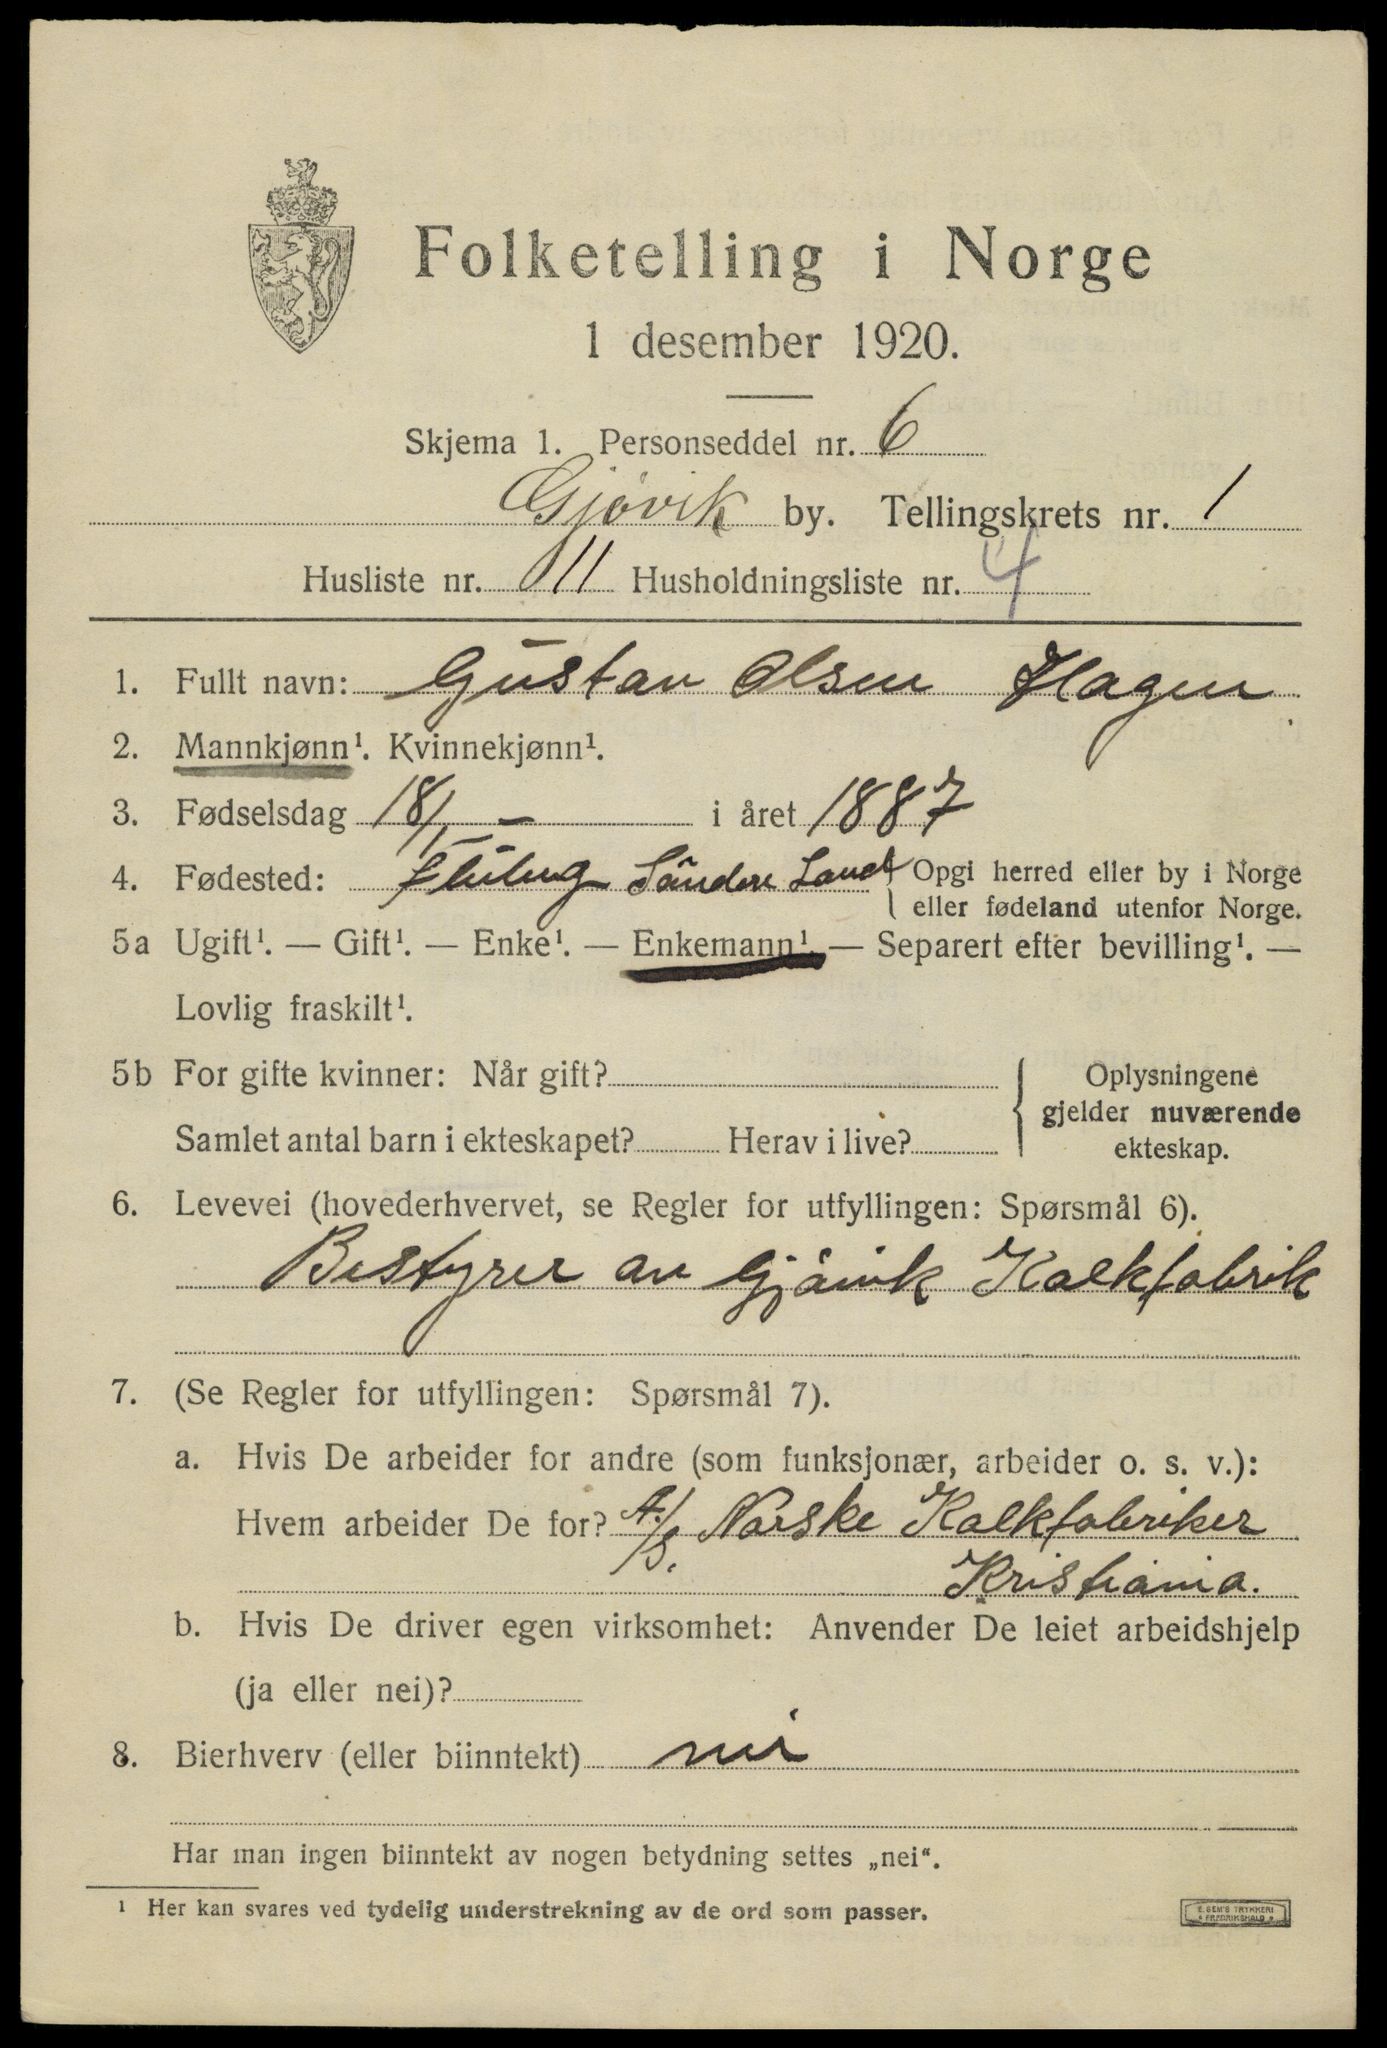 Folketelling i Norge
1 desember 1920.
Skjema 1. Personseddel nr. 6
Gjövik by. Tellingskrets nr. 1
Husliste nr. 11 Husholdningsliste nr. 4
1. Fullt navn: Gustav Olsen Hagen
2. Mannkjønn¹. Kvinnekjønn¹.
3. Fødselsdag 18/1 – i året 1887
4. Fødested: Söndre Land { Opgi herred eller by i Norge
eller fødeland utenfor Norge.
5a Ugift¹. — Gift¹. — Enke¹. — Enkemann¹. — Separert efter bevilling¹. —
Lovlig fraskilt¹.
5b For gifte kvinner: Når gift? } Oplysningene
gjelder nuværende
Samlet antal barn i ekteskapet? Herav i live? ekteskap.
6. Levevei (hovederhvervet, se Regler for utfyllingen: Spørsmål 6).
Bestyrer av Gjövik Kalkfabrik
7. (Se Regler for utfyllingen: Spørsmål 7).
a. Hvis De arbeider for andre (som funksjonær, arbeider o. s. v.):
Hvem arbeider De for? A/S. Norske Kalkfabriker
Kristiania.
b. Hvis De driver egen virksomhet: Anvender De leiet arbeidshjelp
(ja eller nei)?
8. Bierhverv (eller biinntekt) nei
Har man ingen biinntekt av nogen betydning settes „nei“.
¹ Her kan svares ved tydelig understrekning av de ord som passer.
E. SEM'S TRYKKERI
FREDRIKSHALD